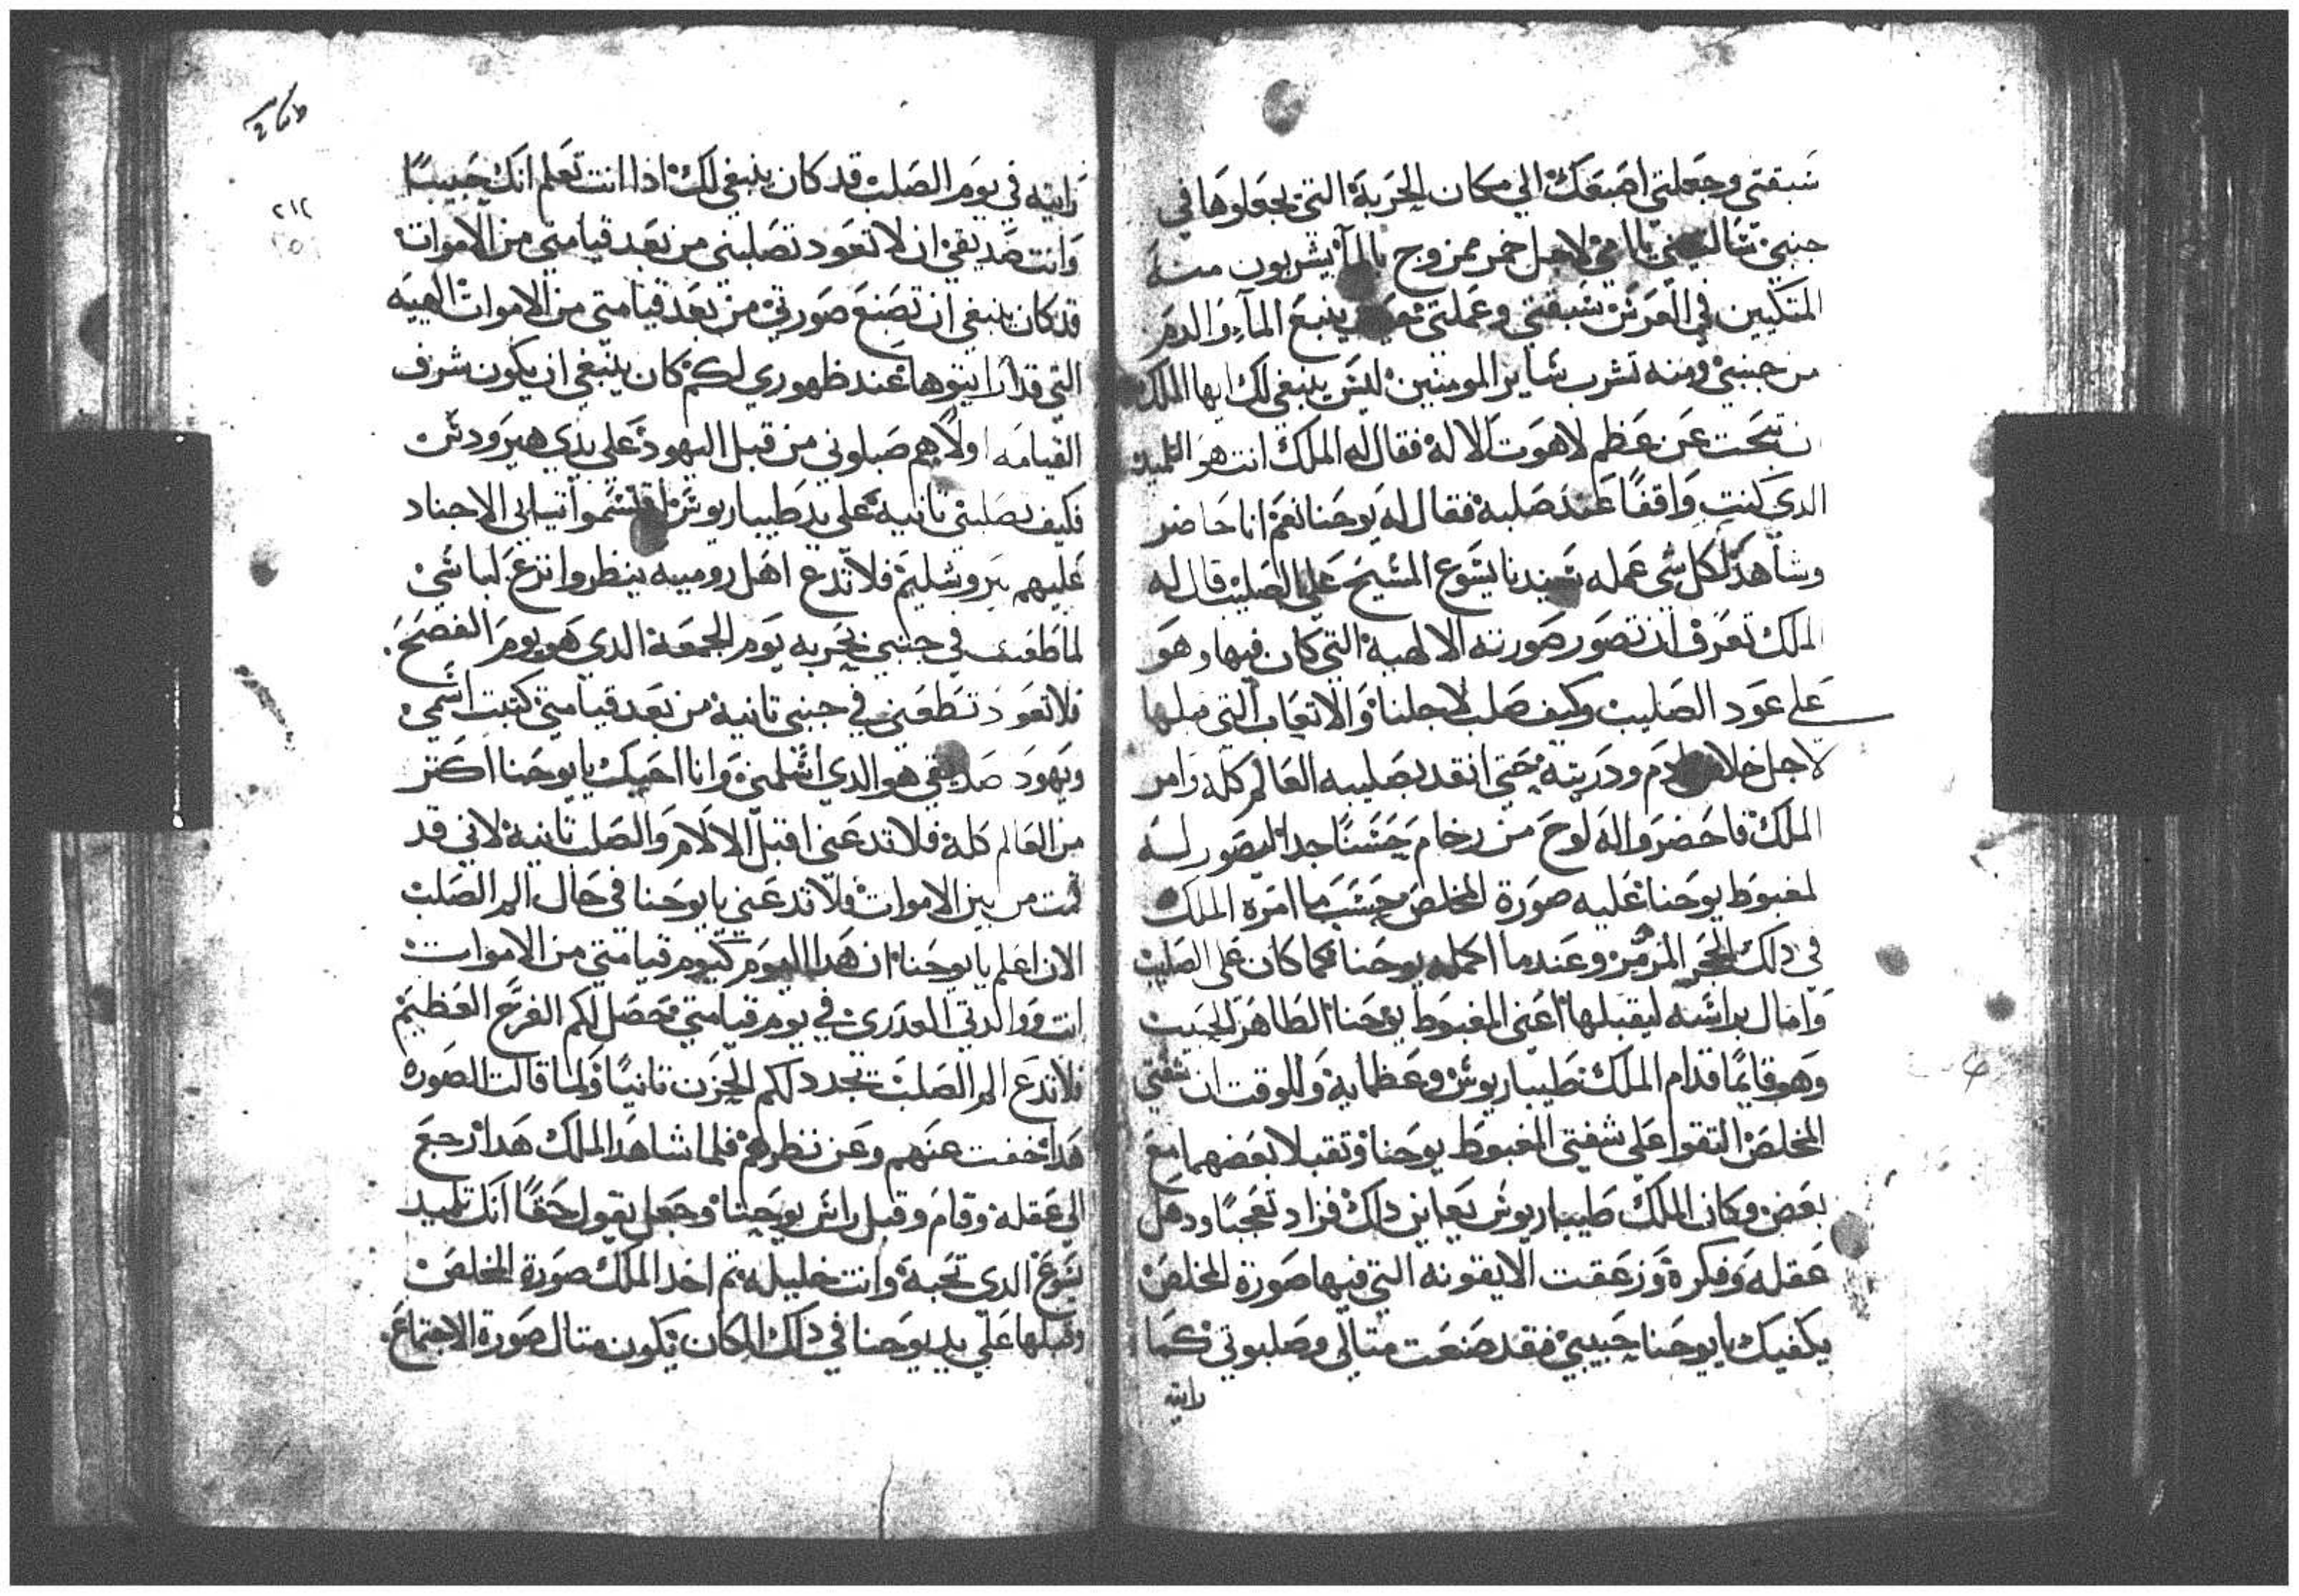 سبقتي وجعلتي اصبعك الي مكان الحربة التي يجعلوها في
جنبي يا امي لاجل خمر ممزوج بالمآ يشربون منه
المتكيين في العرس سبقتي وعملتي ينبع المآء والدم
من جنبي ومنه تشرب ساير المومنين ليس ينبغي لك ايها الملك
ان تبحت عن عظم لاهوت الاله فقال له الملك انت هو التلميد
الدي كنت واقفًا عند صلبه فقال له يوحنا نعم انا حاضر
وشاهد لكل شي عمله سيدنا يسوع المسيح علي الصليب قال له
الملك تعرف ان تصور صورته الالهية التي كان فيها وهو
علي عود الصليب وكيف صلب لاجلنا والاتعاب التي قبلها
لاجل خلاص ادم ودريته حتي انقد بصليبه العالم كله وامر
الملك فاحضروا له لوح من رخام حسنًا جدا ليصور له
لمغبوط يوحنا عليه صورة المخلص بحسب ما امره الملك
في دلك الحجر المرمر وعندما اكمله يوحنا كما كان علي الصليب
وامال براسه ليقبلها اعني المغبوط يوحنا الطاهر الحبيب
وهو قايمًا قدام الملك طيباريوس وعظمايه وللوقت ان شفتي
المخلص التقوا علي شفتي المغبوط يوحنا وتقبلا بعضهما مع
بعض وكان الملك طيباريوس يعاين دلك فزاد تعجبًا ودهل
عقله وفكره وزعقت الايقونه التي فيها صورة المخلص
يكفيك يا يوحنا حبيبي فقد صنعت متالي وصلبوتي كما
رايته
٢١٢
رايته في يوم الصلب قد كان ينبغي لك ادا انت تعلم انك حبيبًا
وانت صديقي ان لا تعود تصلبني من بعد قيامتي من الاموات
قد كان ينبغي ان تصنع صورتي من بعد قيامتي من الاموات الهيبه
التي قد رايتوها عند ظهوري لكم كان ينبغي ان يكون شرف
القيامه اولًا هم صلبوني من قبل اليهود علي يدي هيرودس
فكيف تصلبني تانية علي يد طيباريوس اقتسموا تيابي الاجناد
عليهم بيروشليم فلا تدع اهل روميه ينظروا نزع لباسي
لما طعنت في جنبي بحربه يوم الجمعة الدي هو يوم الفصح
فلا تعود تطعني في جنبي تانية من بعد قيامتي كتبت اسمي
ويهود صديقي هو الدي اسلمني وانا احبك يا يوحنا اكتر
من العالم كله فلا تدعني اقبل الالام والصلب تانية لاني قد
قمت من بين الاموات ولا تدعني يا يوحنا في حال الم الصلب
الان اعلم يا يوحنا ان هدا اليوم كيوم قيامتي من الاموات
انت ووالدتي العدري في يوم قيامتي حصل لكم الفرح العظيم
فلا تدع الم الصلب يجدد لكم الحزن تانيًا ولما قالت الصوره
هدا خفت عنهم وعن نظرهم فلما شاهد الملك هدا رجع
الي عقله وقام وقبل راس يوحنا وجعل يقول حقًا انك تلميد
يسوع الدي تحبه وانت خليله تم اخد الملك صورة المخلص
وقبلها علي يد يوحنا في دلك المكان يكون متال صورة الاجتماع